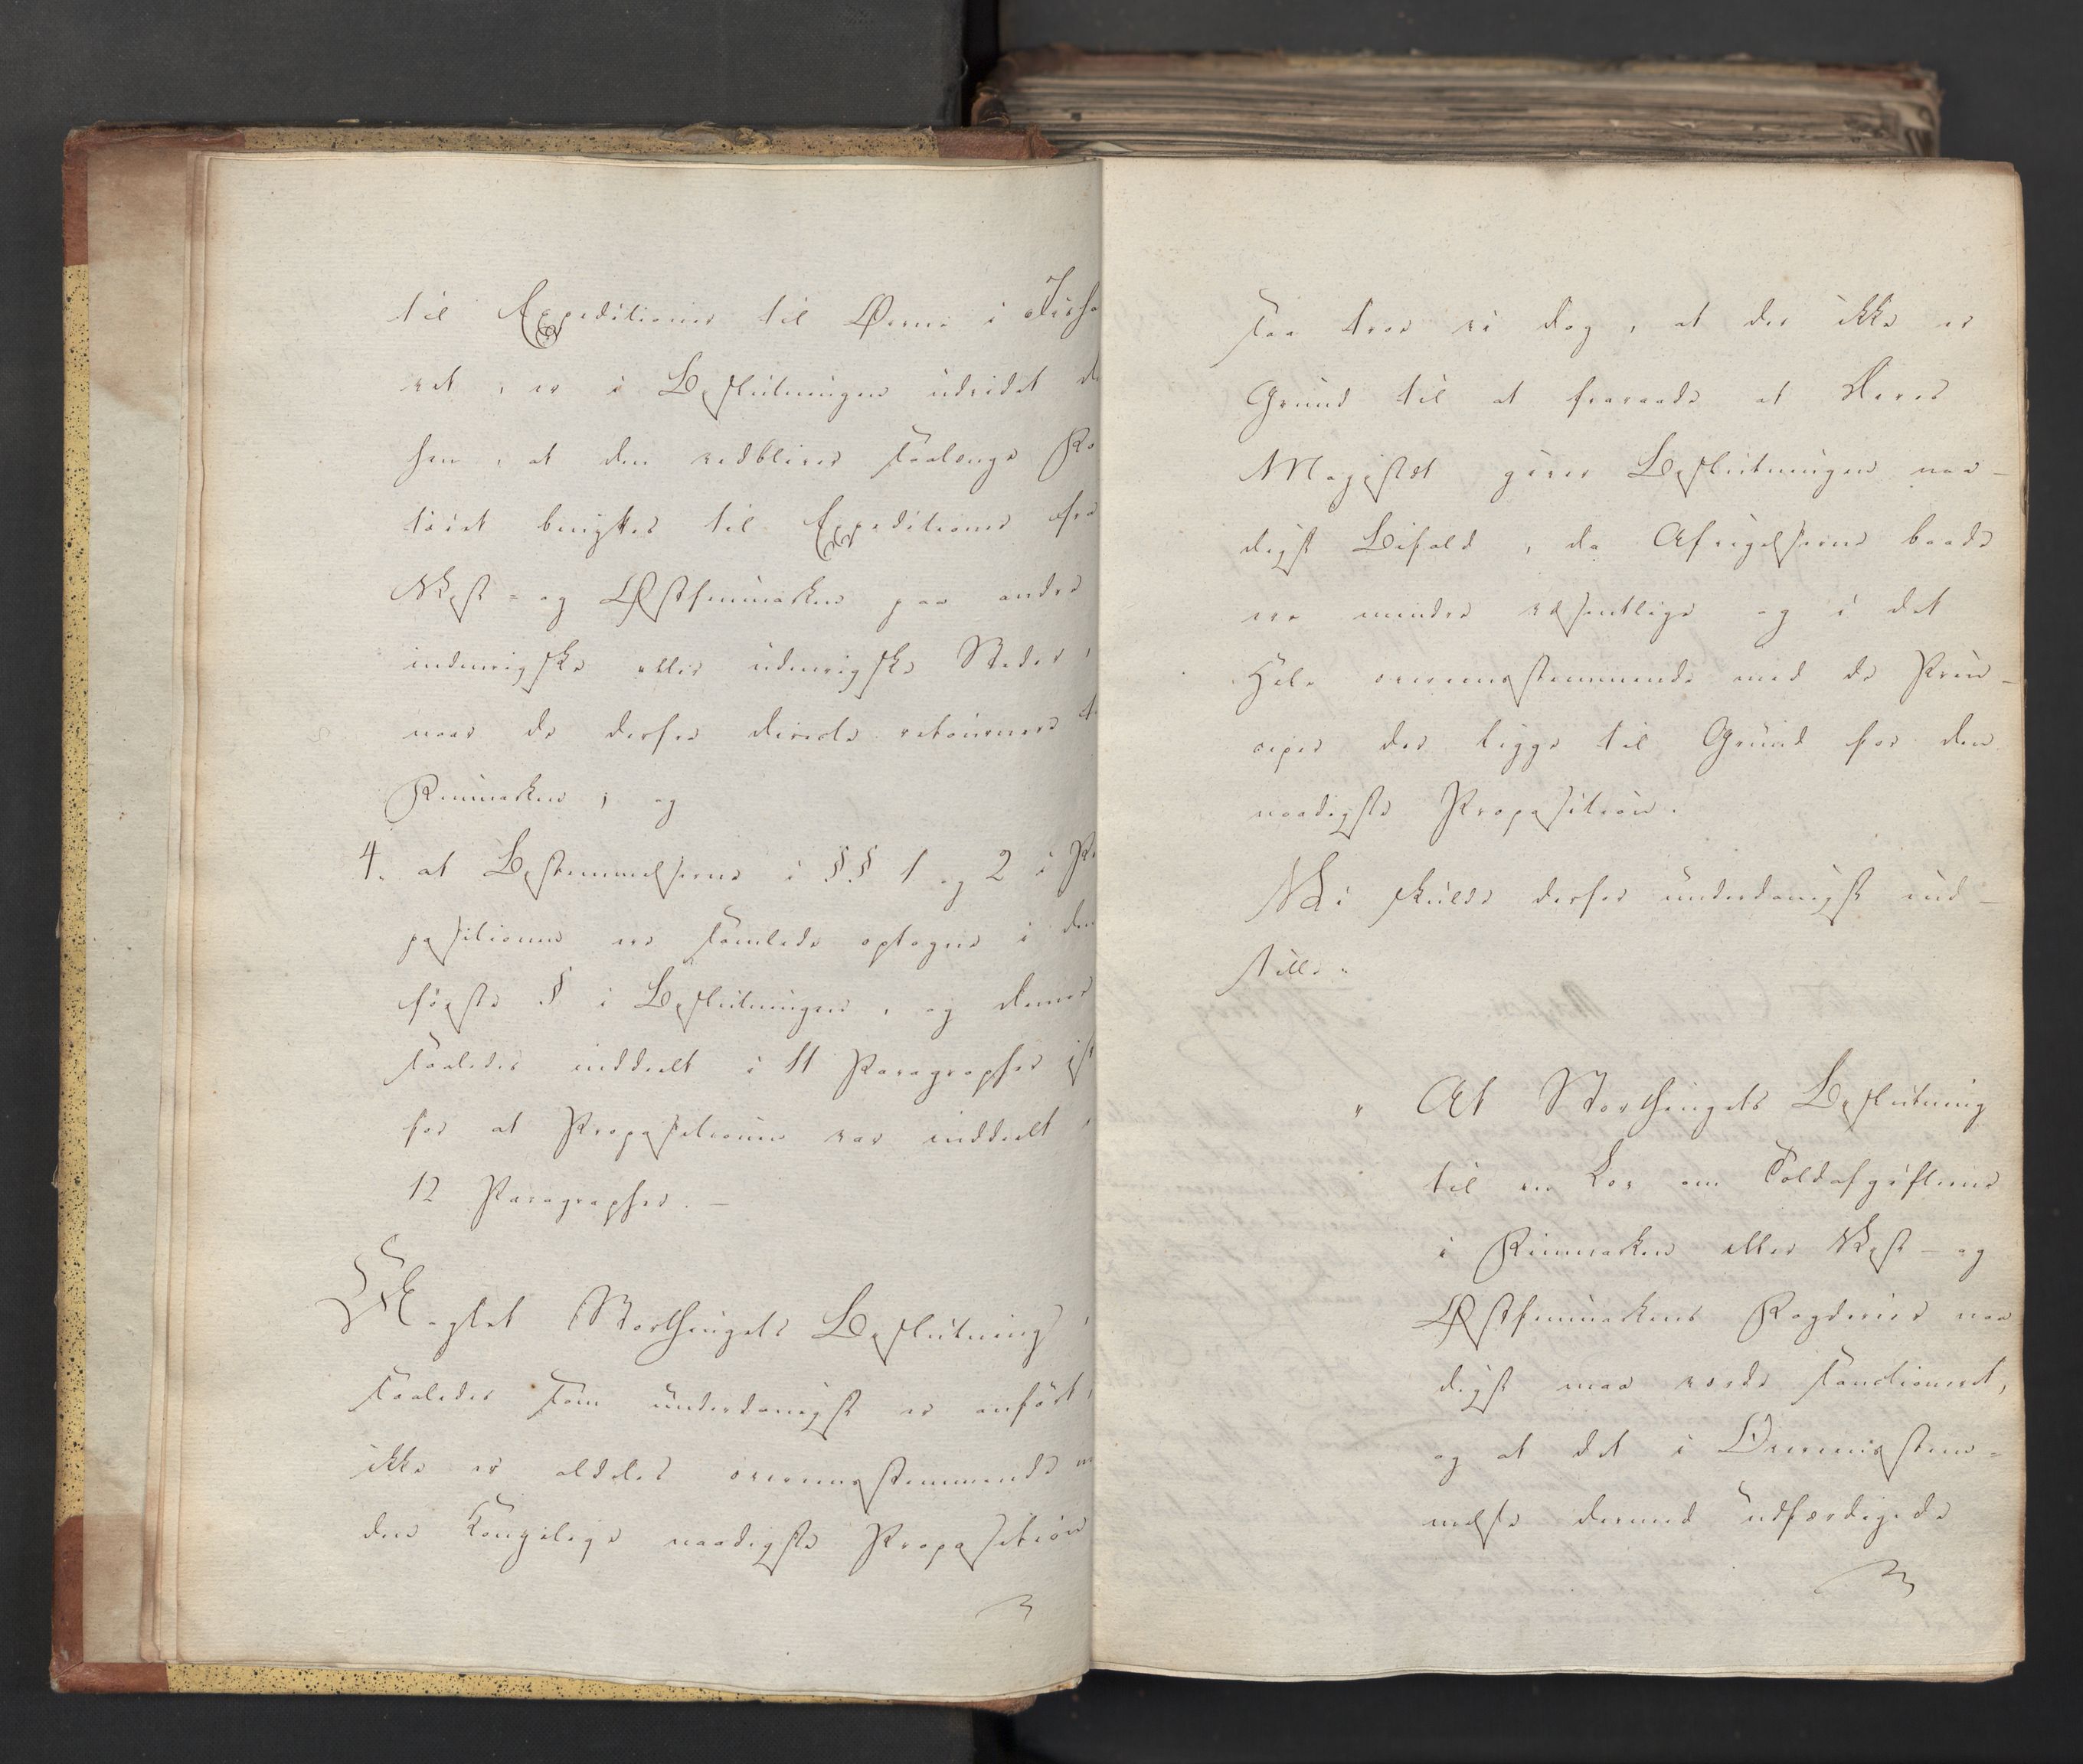 til Expeditioner til Øerne i Iisha
vet, er i Beslutningen udvidet de
hen, at den vedbliver saalænge Fa
töiet benyttes til Expeditioner fra
Vest- og Østfinmarken paa andre
indenrigske eller udenrigske Steder,
naar de derfra directe retournere ti
Finmarken; og
4. at Bestemmelserne i §§ 1 og 2 i Pro
positionen ere samlede optagne i den
første § i Beslutningen, og denne
saaledes inddeelt i 11 Paragrapher ist
for at Propositionen var inddeelt i
12 Paragrapher. –
Skjøndt Storthingets Beslutning,
saaledes som underdanigst er anført,
ikke er aldeles overeensstemmende m
den Kongelige naadigste Proposition
saa troe vi dog, at der ikke er
Grund til at fraraade at Deres
Majestæt giver Beslutningen naa-
digst Bifald, da Afvigelserne baade
ere mindre væsentlige og i det
Hele overeensstemmende med de Prin-
ciper der ligge til Grund for den
naadigste Proposition.
Vi skulde derfor underdanigst ind-
stille:
" At Storthingets Beslutning
til en Lov om Toldafgifterne
i Finmarken eller Vest- og
Østfinmarkens Fogderier naa
digst maa vorde sanctioneret,
og at det i Overeensstem-
melse dermed udfærdigede